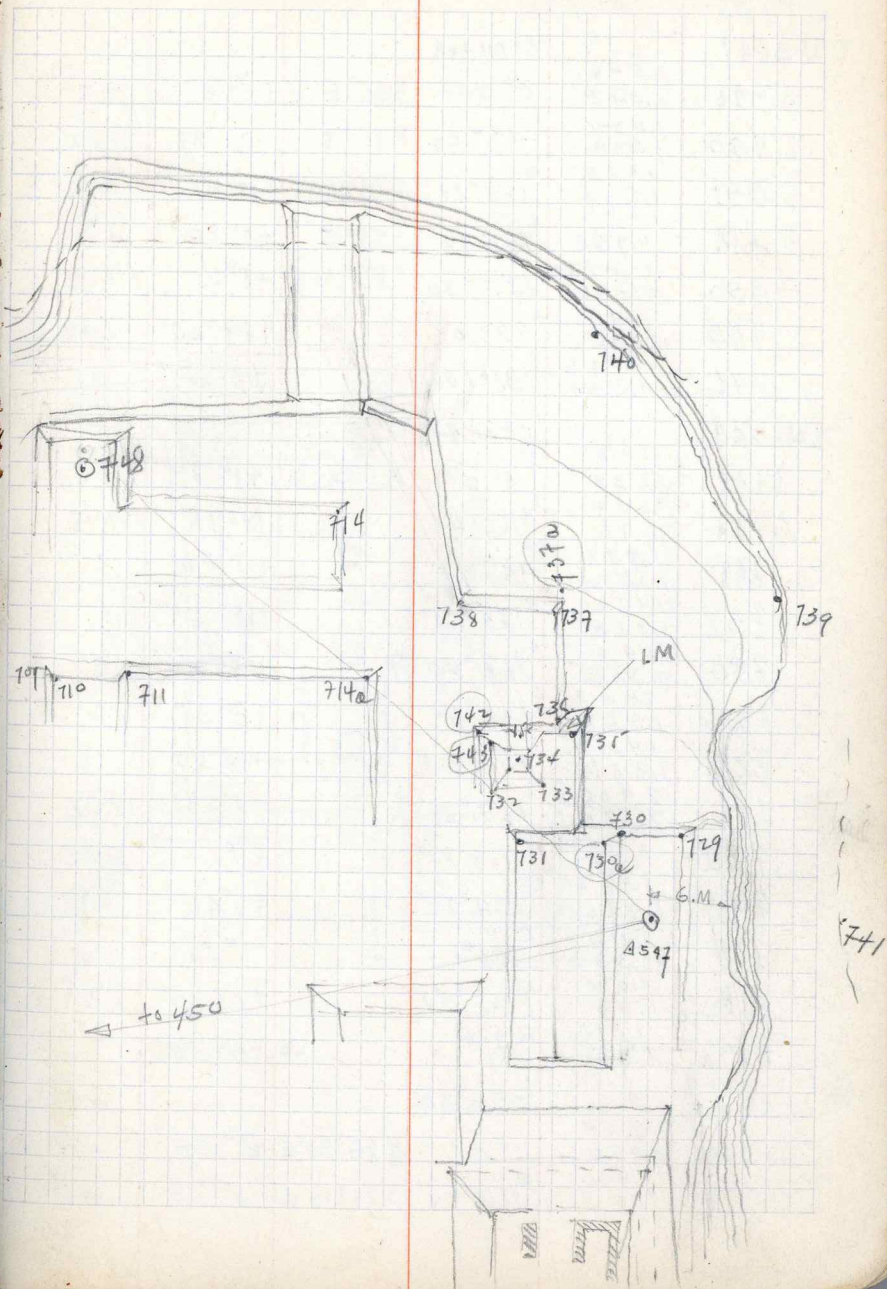 740
748
714
737a
738
737
739
LM
709
710
711
714a
742
736
735
743
734
732
733
731
730
730a
729
6.M
Δ547
741
to 450